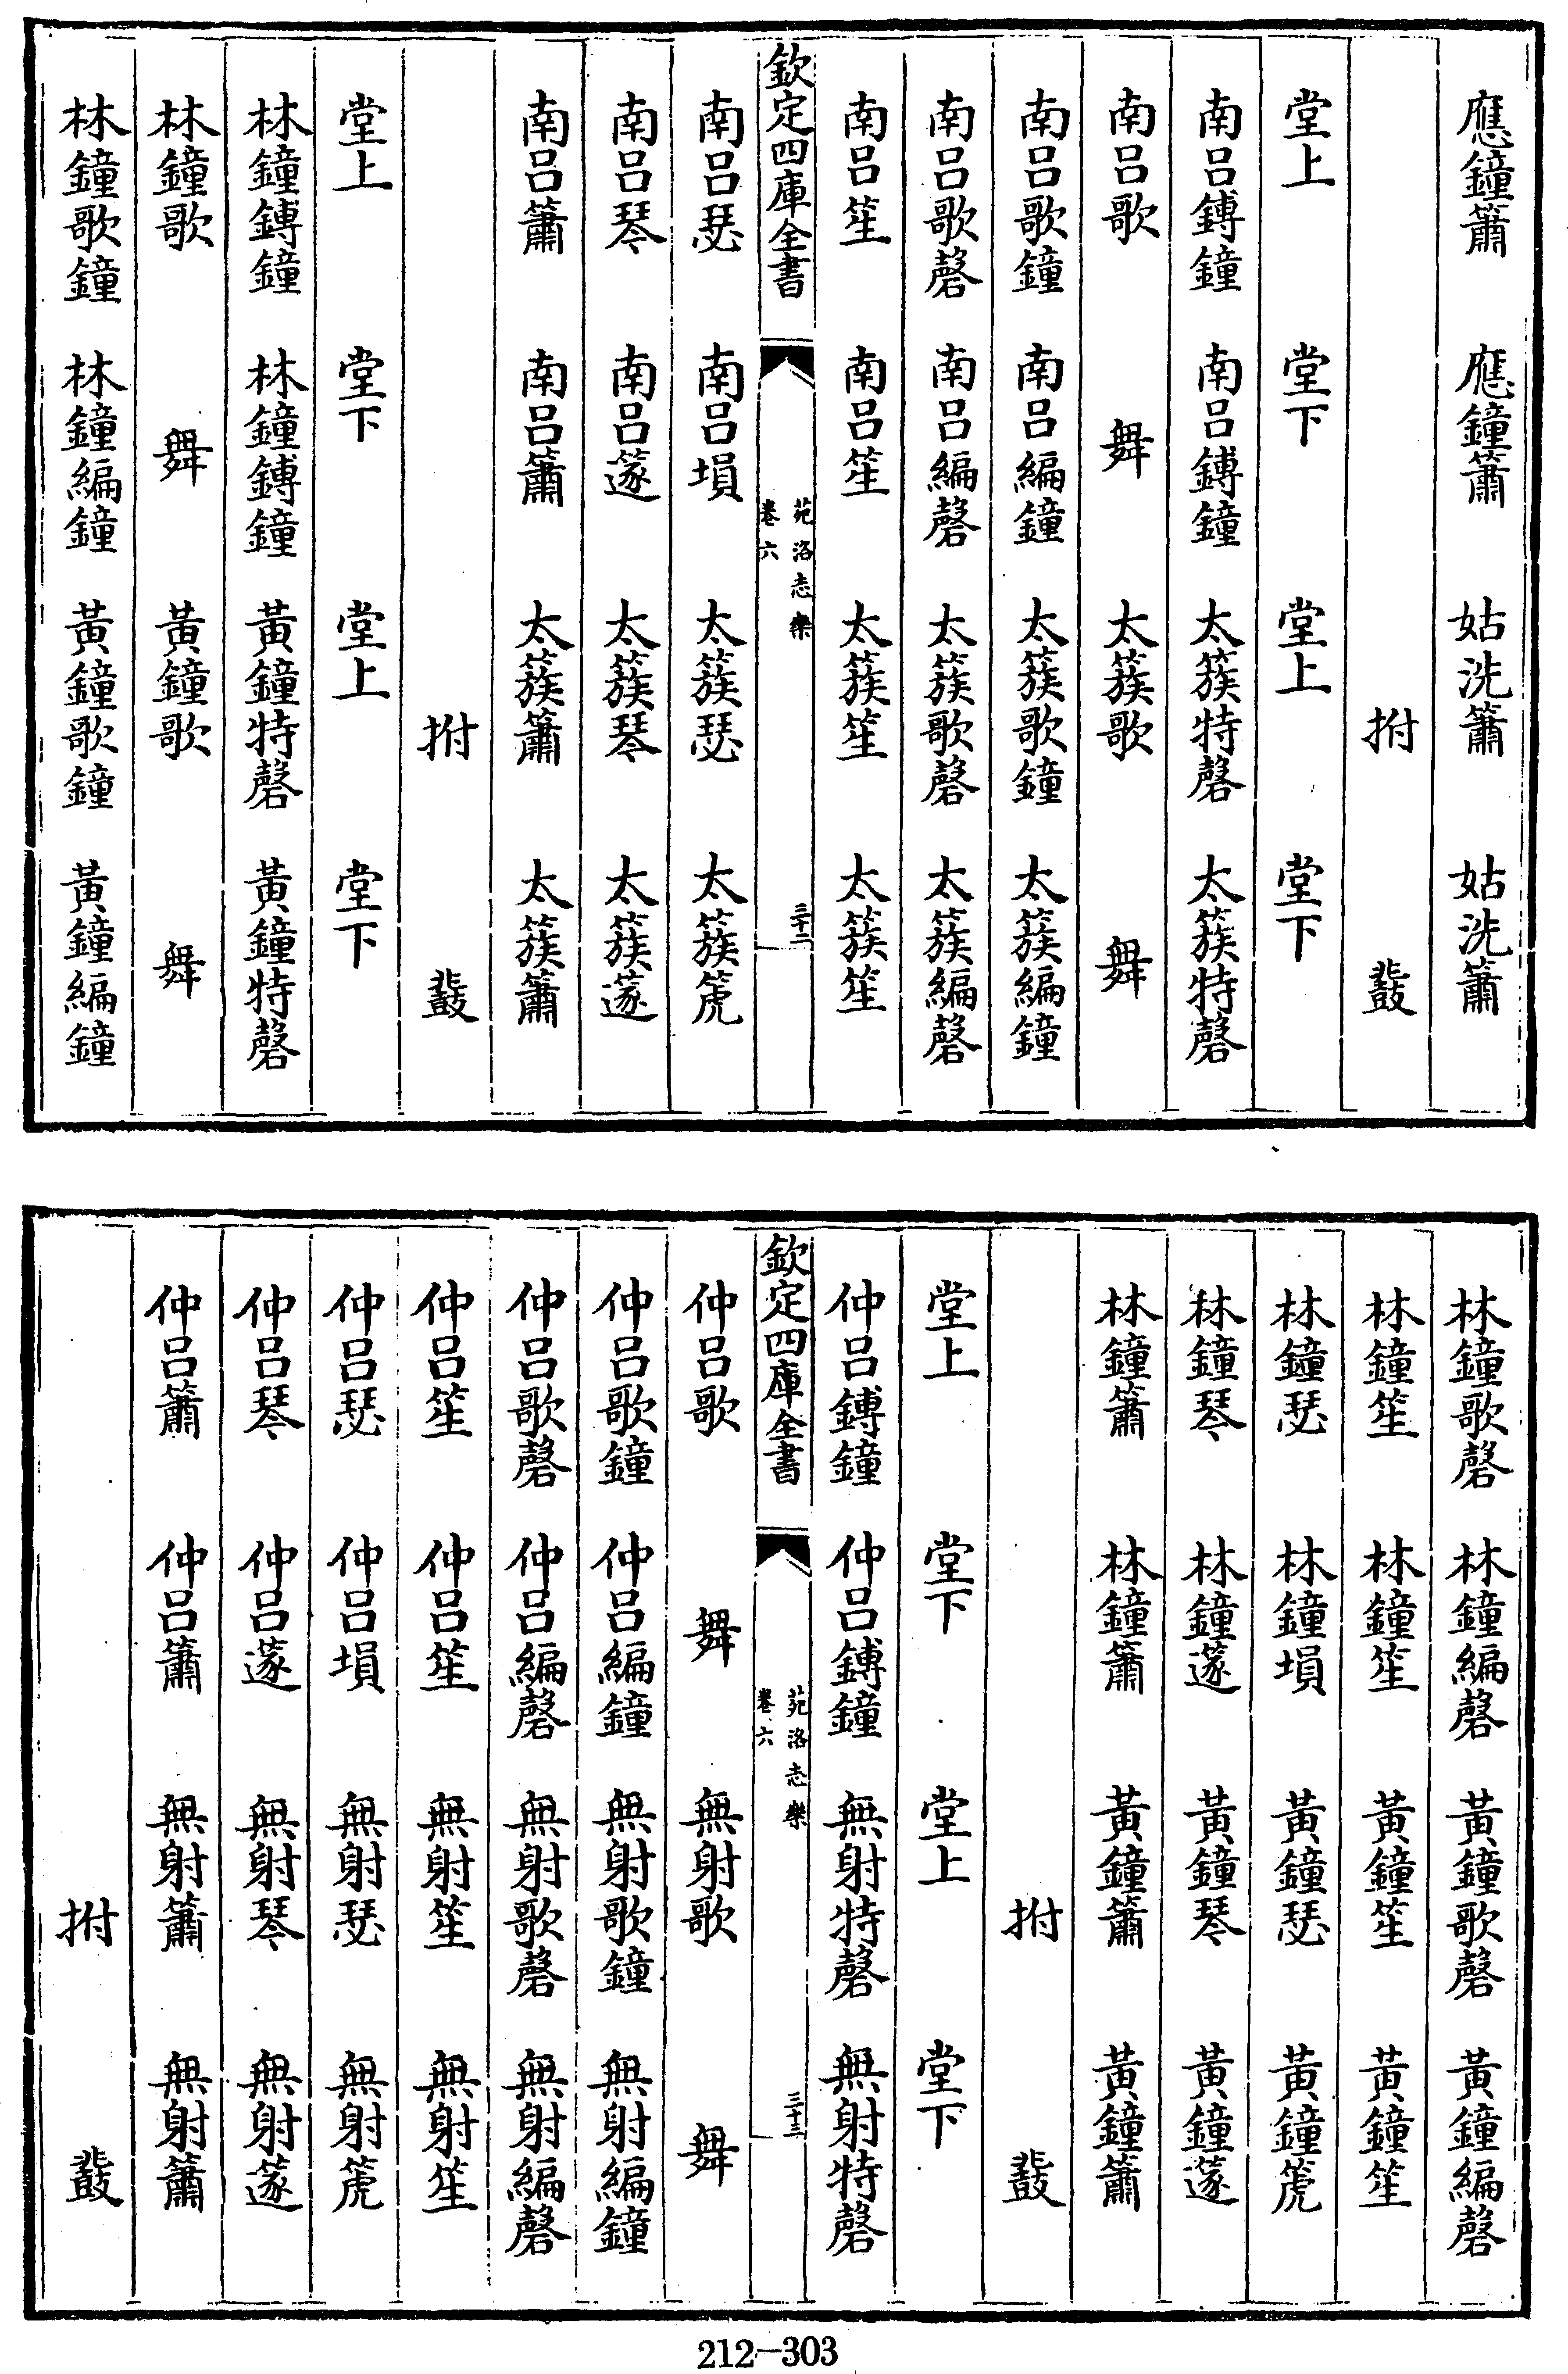 應鐘簫 應鐘簫 姑洗簫 姑洗簫
拊 鼗
堂上 堂下 堂上 堂下
南呂鎛鐘 南呂鎛鐘 太簇特磬 太簇特磬
南呂歌 舞 太簇歌 舞
南呂歌鐘 南呂編鐘 太簇歌鐘 太簇編鐘
南呂歌磬 南呂編磬 太簇歌磬 太簇編磬
南呂笙 南呂笙 太簇笙 太簇笙
欽定四庫全書
苑洛志樂
卷六
三十二
南呂瑟 南呂塤 太簇瑟 太簇箎
南呂琴 南呂篴 太簇琴 太簇篴
南呂簫 南呂簫 太簇簫 太簇簫
拊 鼗
堂上 堂下 堂上 堂下
林鐘鎛鐘 林鐘鎛鐘 黃鐘特磬 黃鐘特磬
林鐘歌 舞 黃鐘歌 舞
林鐘歌鐘 林鐘編鐘 黃鐘歌鐘 黃鐘編鐘
林鐘歌磬 林鐘編磬 黃鐘歌磬 黃鐘編磬
林鐘笙 林鐘笙 黃鐘笙 黃鐘笙
林鐘瑟 林鐘塤 黃鐘瑟 黃鐘箎
林鐘琴 林鐘篴 黃鐘琴 黃鐘篴
林鐘簫 林鐘簫 黃鐘簫 黃鐘簫
拊 鼗
堂上 堂下 堂上 堂下
仲呂鎛鐘 仲呂鎛鐘 無射特磬 無射特磬
欽定四庫全書
苑洛志樂
卷六
三十三
仲呂歌 舞 無射歌 舞
仲呂歌鐘 仲呂編鐘 無射歌鐘 無射編鐘
仲呂歌磬 仲呂編磬 無射歌磬 無射編磬
仲呂笙 仲呂笙 無射笙 無射笙
仲呂瑟 仲呂塤 無射瑟 無射箎
仲呂琴 仲呂篴 無射琴 無射篴
仲呂簫 仲呂簫 無射簫 無射簫
拊 鼗
212-303